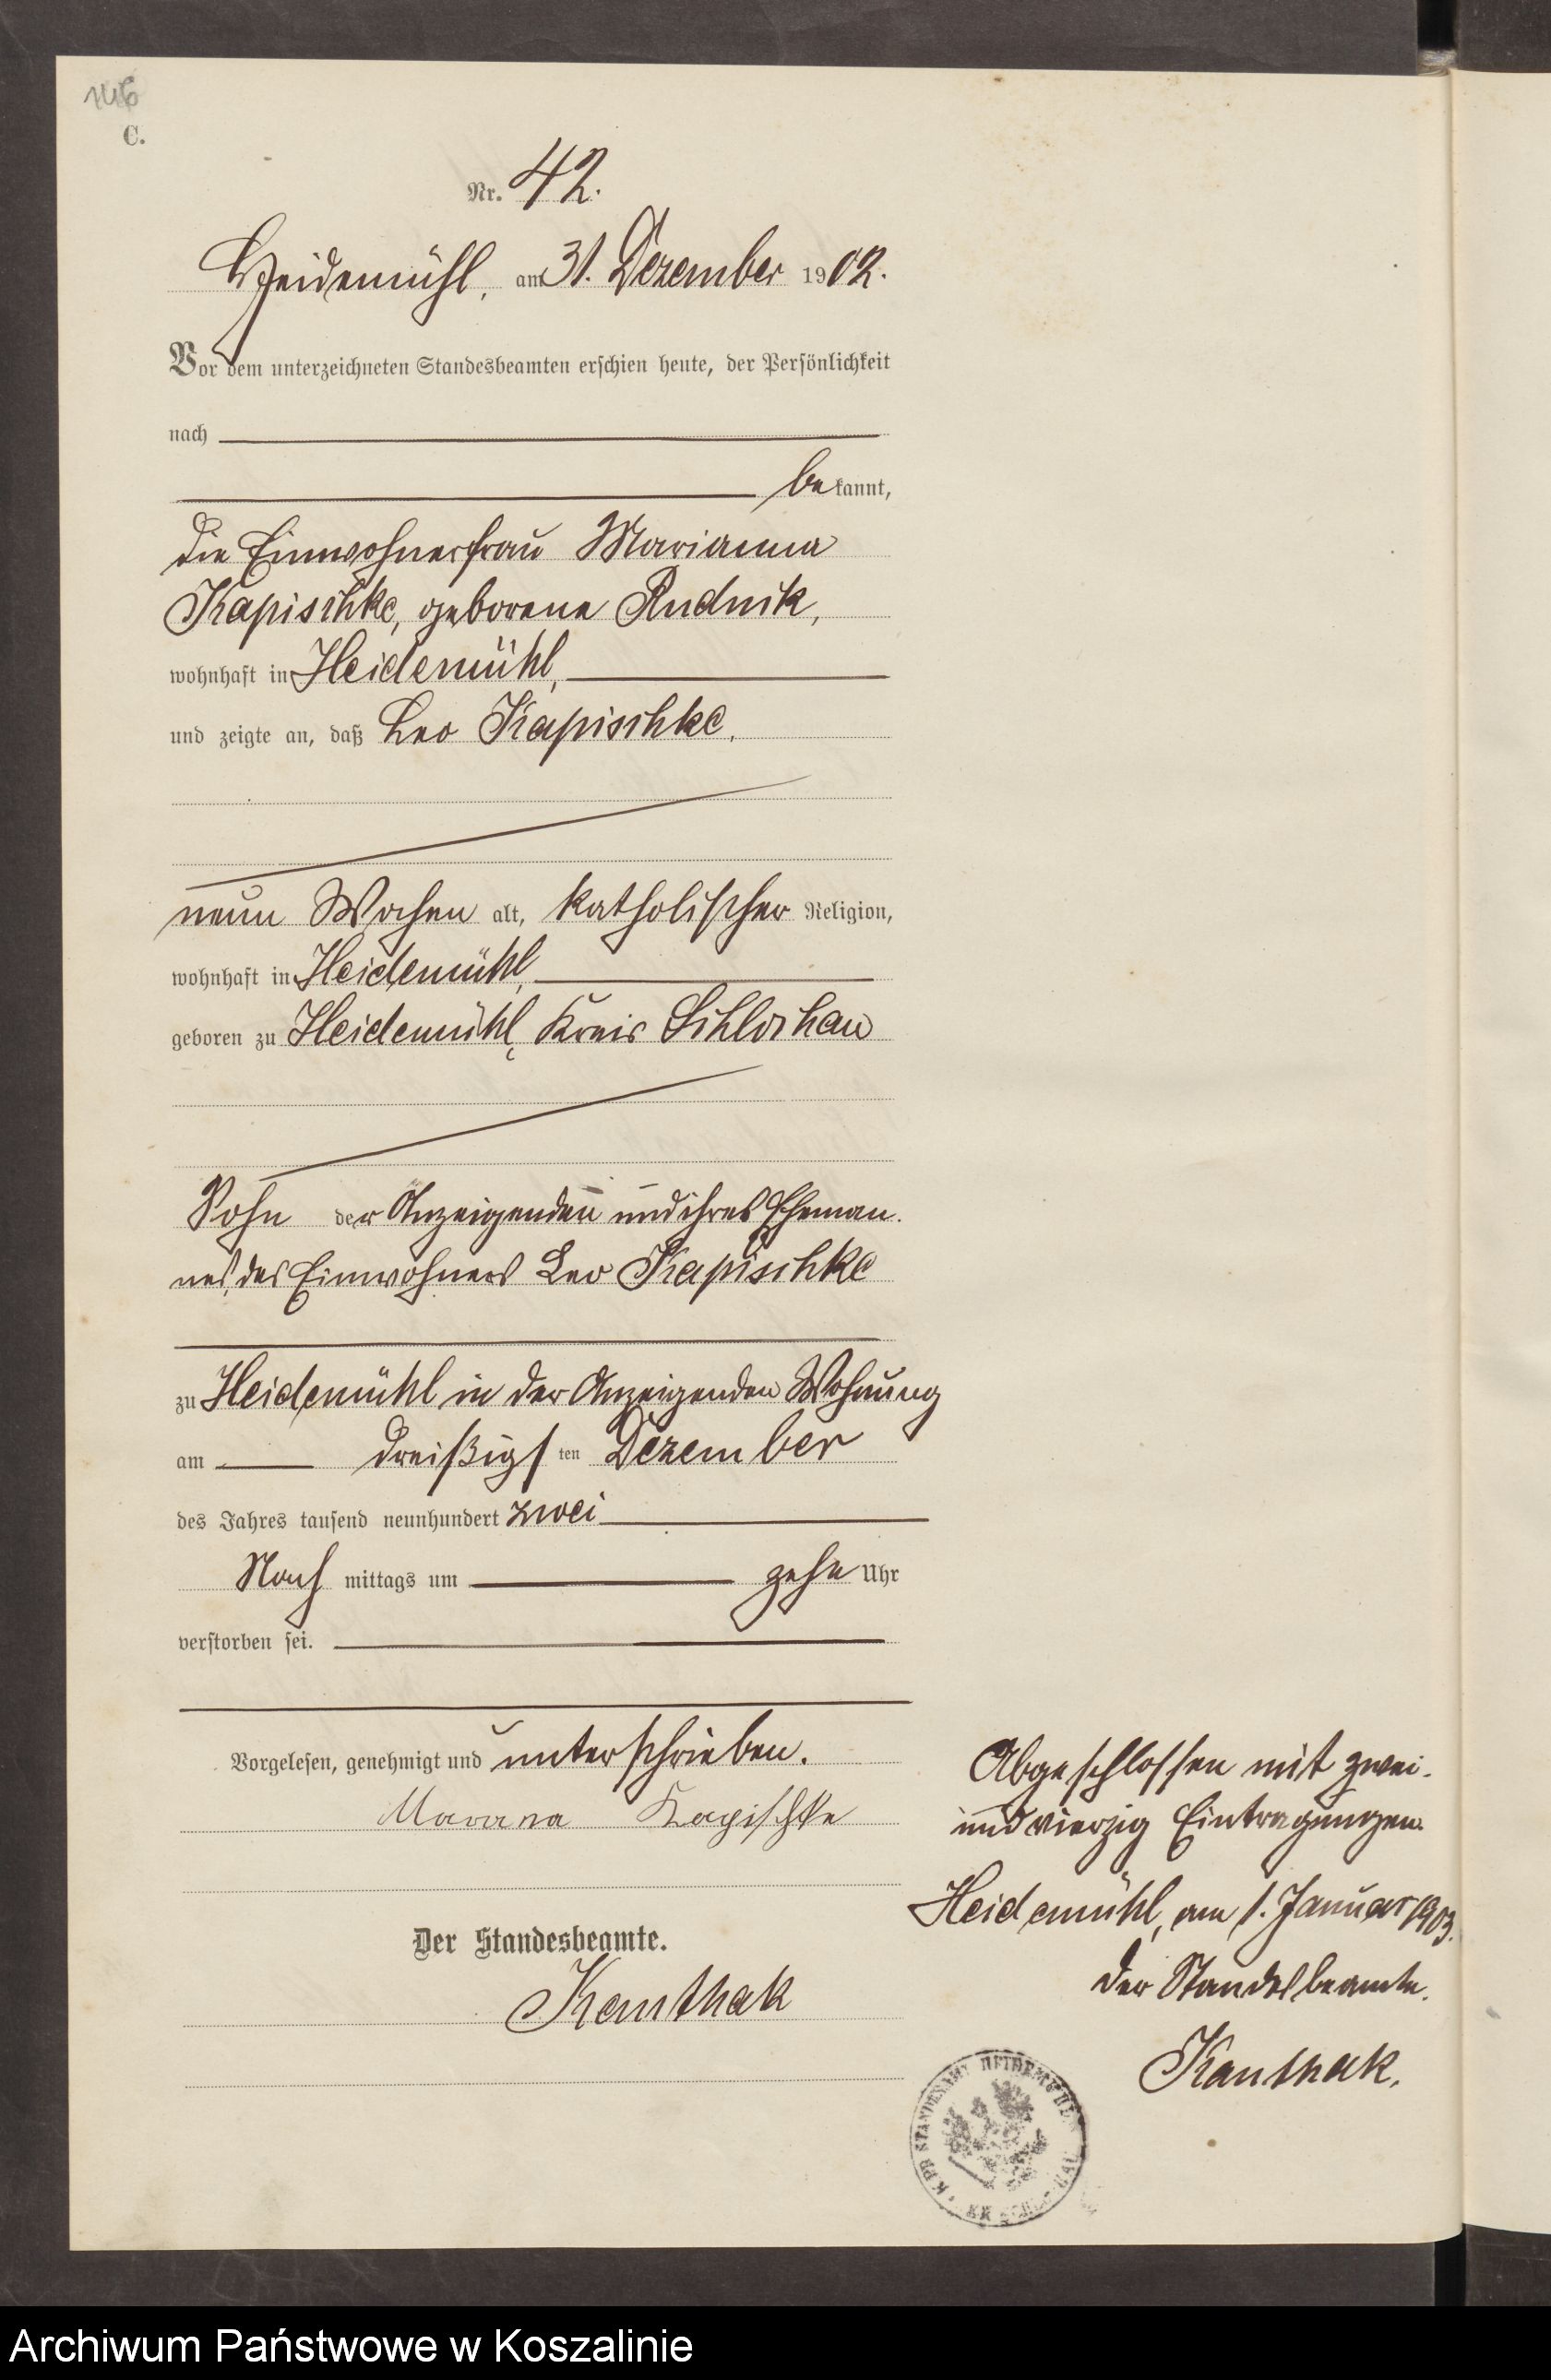 146
C.
Nr. 42.
Heidemühl, am 31. Dezember 1902.
Vor dem unterzeichneten Standesbeamten erschien heute, der Persönlichkeit
nach
bekannt,
die Einwohnerfrau Marianna
Kapischke, geborene Rudnik,
wohnhaft in Heidemühl,
und zeigte an, daß Leo Kapischke,
neun Wochen alt, katholischer Religion,
wohnhaft in Heidemühl,
geboren zu Heidemühl, Kreis Schlochau
Sohn der Anzeigenden und ihres Eheman-
nes, des Einwohners Leo Kapischke
zu Heidemühl in der Anzeigenden Wohnung
am dreißigsten Dezember
des Jahres tausend neunhundert zwei
Nachmittags um zehn Uhr
verstorben sei.
Vorgelesen, genehmigt und unterschrieben.
Marana Kapischke
Der Standesbeamte.
Kanthak
Abgeschlossen mit zwei-
undvierzig Eintragungen.
Heidemühl, am 1. Januar 1903.
Der Standesbeamte.
Kanthak.
K. PR. STANDESAMT HEIDEMÜHL
Archiwum Państwowe w Koszalinie